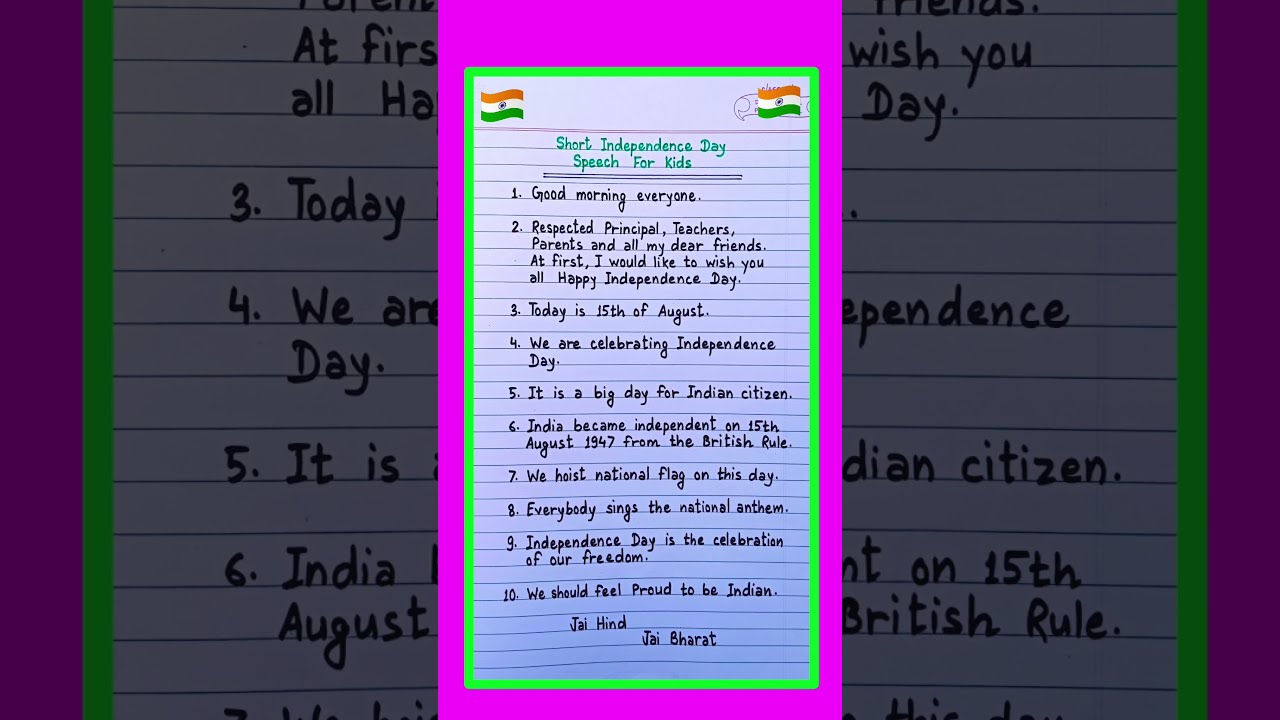 Short Independence Day
Speech For Kids
1. Good morning everyone.
2. Respected Principal, Teachers,
Parents and all my dear friends.
At first, I would like to wish you
all Happy Independence Day.
3. Today is 15th of August.
4. We are celebrating Independence
Day.
5. It is a big day for Indian citizen.
6. India became independent on 15th
August 1947 from the British Rule.
7. We hoist national flag on this day.
8. Everybody sings the national anthem.
9. Independence Day is the celebration
of our freedom.
10. We should feel Proud to be Indian.
Jai Hind
Jai Bharat